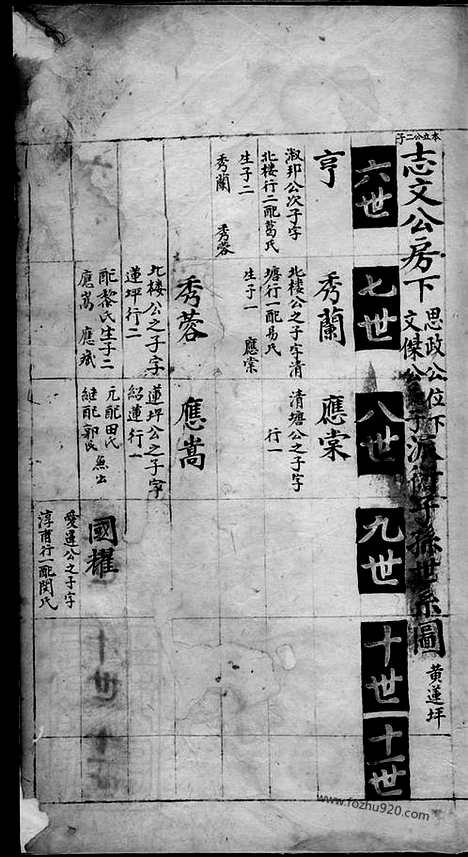 本立公二子
志文公房下
思政公位下
文傑公
派衍子孫世系圖
黄蓮坪
六世
七世
八世
九世
十世
十一世
亨
淑邦公次子字
北楼行二配葛氏
生子二
秀蘭 秀蓉
秀蘭
北楼公之子字清
塘行一配易氏
生子一 應棠
應棠
清塘公之子字
行一
秀蓉
北楼公之子字
蓮坪行二
配黎氏生子二
應嵩 應斌
應嵩
蓮坪公之子字
紹蓮行一
元配田氏 無出
継配郭氏
國耀
愛蓮公之子字
淳甫行一配閔氏
十世
www.fozhu920.com